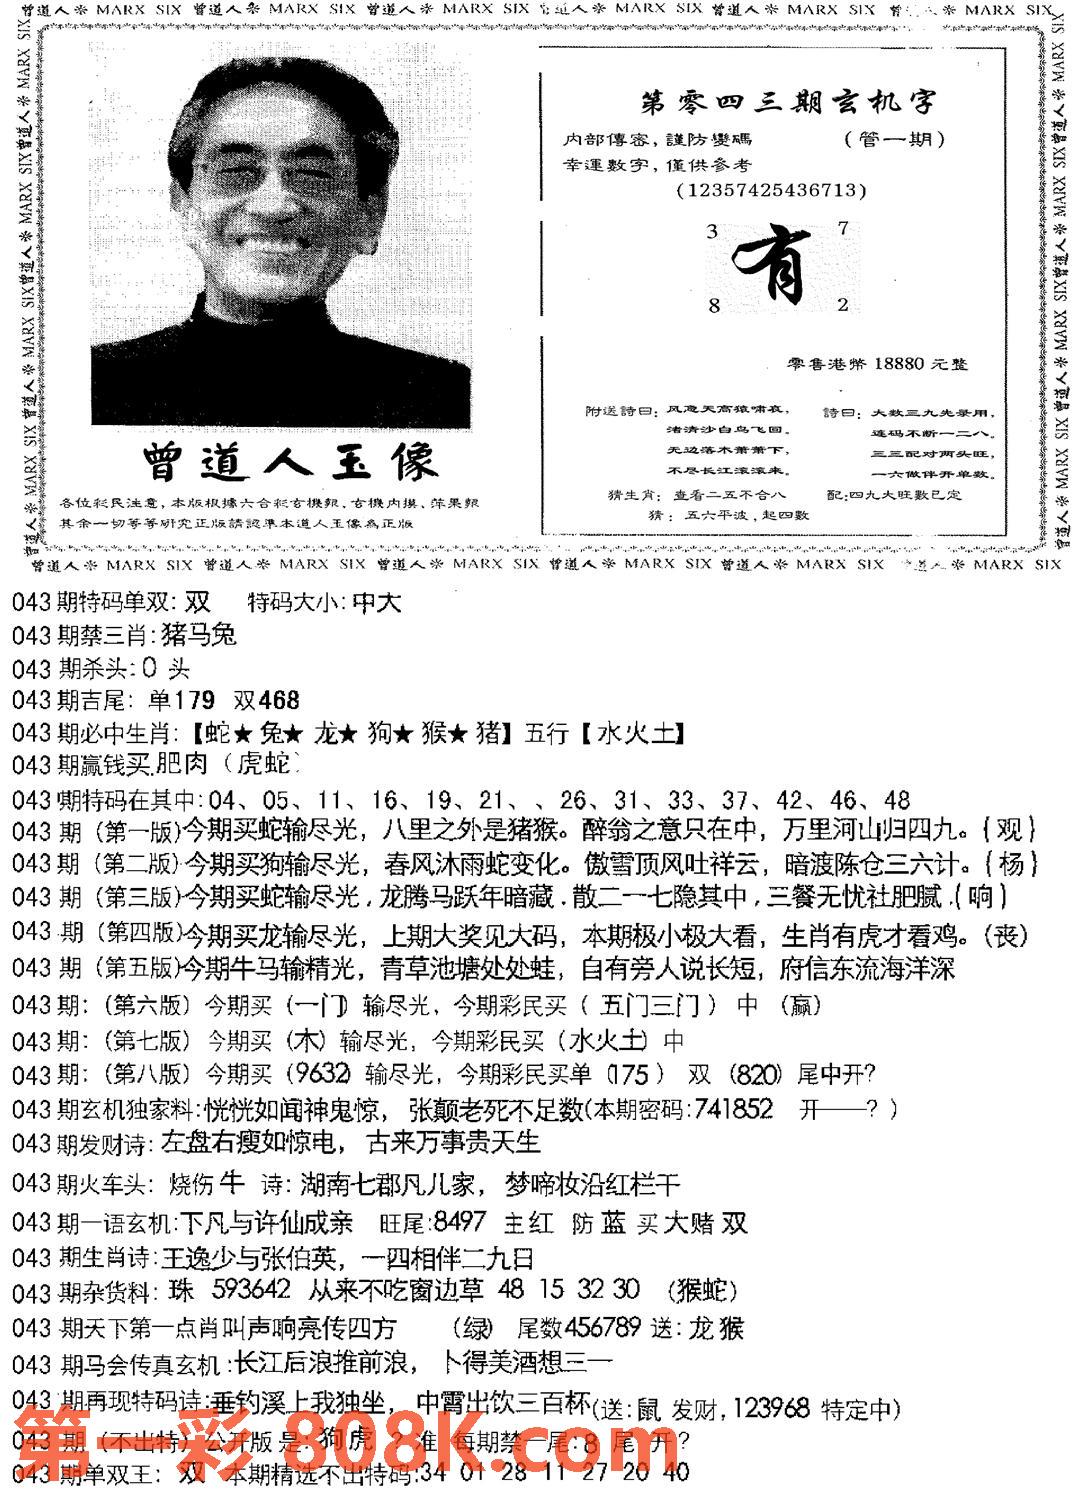 曾道人❊ MARX SIX 曾道人❊ MARX SIX 曾道人❊ MARX SIX 曾道人❊ MARX SIX 曾道人❊ MARX SIX MARX SIX
第零四三期玄机字
内部傳密，謹防變碼 （管一期）
幸運數字，僅供參考
(12357425436713)
3 7
有
8 2
零售港幣 18880 元整
附送詩曰：风急天高猿啸哀，
渚清沙白鸟飞回。
无边落木萧萧下，
不尽长江滚滚来。
詩曰：大数三九先录用，
连码不断一二八。
三三配对两头旺，
一六做伴开单数。
猜生肖：查看二五不合八 配:四九大旺數已定
猜：五六平波，起四數
曾道人玉像
各位彩民注意，本版根據六合彩玄機報、玄機內摸、萍果報
其余一切等等研究正版請認準本道人玉像為正版
曾道人❊ MARX SIX 曾道人❊ MARX SIX 曾道人❊ MARX SIX 曾道人❊ MARX SIX 曾道人❊ MARX SIX MARX SIX
043期特码单双：双 特码大小：中大
043期禁三肖：猪马兔
043期杀头：0 头
043期吉尾：单179 双468
043期必中生肖：【蛇★兔★龙★狗★猴★猪】五行【水火土】
043期赢钱买.肥肉（虎蛇）
043期特码在其中:04、05、11、16、19、21、、26、31、33、37、42、46、48
043期（第一版)今期买蛇输尽光，八里之外是猪猴。醉翁之意只在中，万里河山归四九。(观)
043期（第二版)今期买狗输尽光，春风沐雨蛇变化。傲雪顶风吐祥云，暗渡陈仓三六计。(杨)
043期（第三版)今期买蛇输尽光，龙腾马跃年暗藏.散二一七隐其中,三餐无忧社肥腻.(响)
043期（第四版)今期买龙输尽光，上期大奖见大码，本期极小极大看，生肖有虎才看鸡。(丧)
043期（第五版)今期牛马输精光，青草池塘处处蛙，自有旁人说长短，府信东流海洋深
043期：（第六版）今期买（一门）输尽光，今期彩民买（五门三门）中（赢）
043期：（第七版）今期买（木）输尽光，今期彩民买（水火土）中
043期：（第八版）今期买（9632）输尽光，今期彩民买单（175）双（820）尾中开？
043期玄机独家料：恍恍如闻神鬼惊，张颠老死不足数(本期密码:741852 开——？）
043期发财诗：左盘右瘦如惊电，古来万事贵天生
043期火车头：烧伤牛 诗：湖南七郡凡儿家，梦啼妆沿红栏干
043期一语玄机：下凡与许仙成亲 旺尾:8497 主红 防蓝 买大赌双
043期生肖诗：王逸少与张伯英，一四相伴二九日
043期杂货料：珠 593642 从来不吃窗边草 48 15 32 30 （猴蛇）
043期天下第一点肖叫声响亮传四方 （绿） 尾数456789 送：龙猴
043期马会传真玄机：长江后浪推前浪，卜得美酒想三一
043期再现特码诗：垂钓溪上我独坐，中霄出饮三百杯(送：鼠 发财，123968 特定中)
043期（不出特）公开版 是：狗虎？准 每期禁一尾：8 尾 开？
043期单双王：双 本期精选不出特码:34 01 28 11 27 20 40
第一彩 808K.com